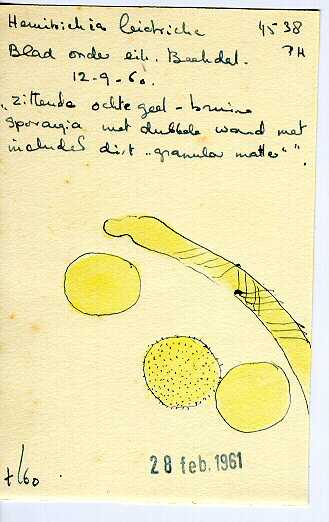 Hemitrichia leiotricha 4538
Blad onder eik. Beekdal. PH
12-9-60.
„zittende ochte geel-bruine
sporangia met dubbele wand met
included dirt „granular matter"".
28 feb. 1961
t/60